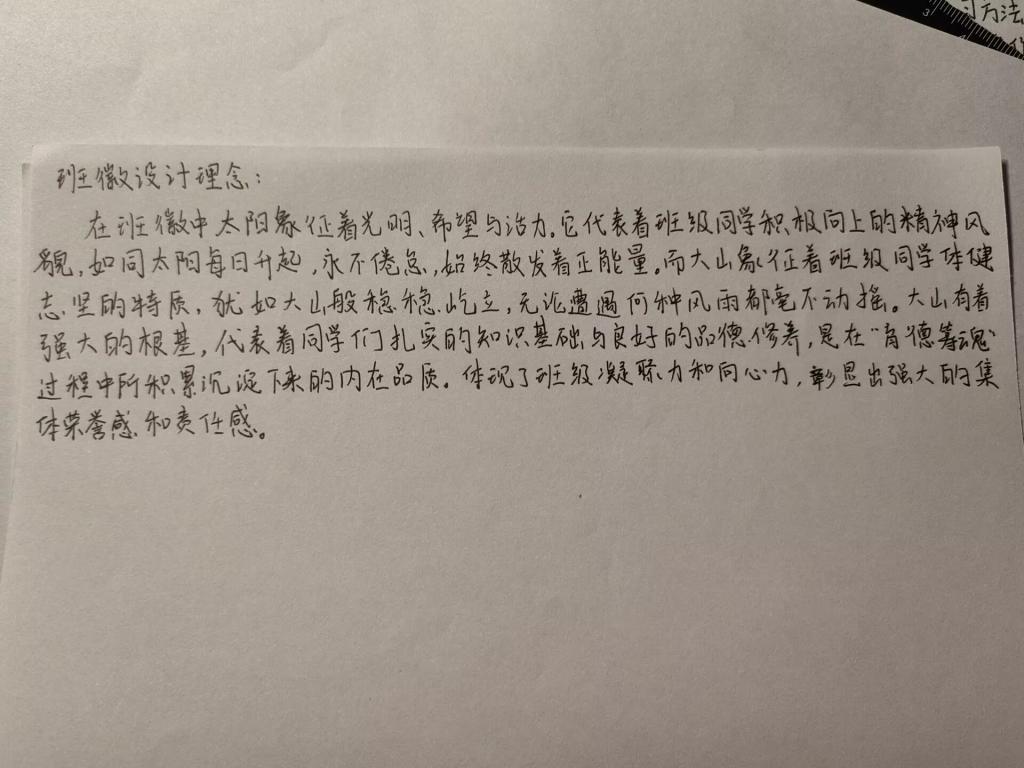 习方法
班徽设计理念：
在班徽中太阳象征着光明、希望与活力。它代表着班级同学积极向上的精神风
貌，如同太阳每日升起，永不倦怠，始终散发着正能量。而大山象征着班级同学体健
志坚的特质，犹如大山般稳稳屹立，无论遭遇何种风雨都毫不动摇。大山有着
强大的根基，代表着同学们扎实的知识基础与良好的品德修养，是在“育德筹魂”
过程中所积累沉淀下来的内在品质。体现了班级凝聚力和向心力，彰显出强大的集
体荣誉感和责任感。